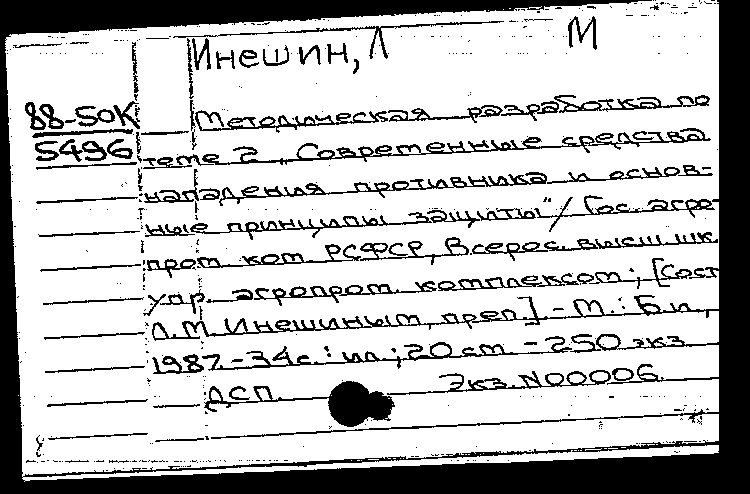 Инешин, Л
М
88-50К
5496
Методическая разработка по
теме 2 „Современные средства
нападения противника и основ-
ные принципы защиты"/ Гос. агро-
пром. ком. РСФСР, Всерос. высш. шк.
упр. агропром. комплексом; [Сост
Л.М. Инешиным, преп.]. - М.: Б.и.,
1987. - 34с.: ил.; 20 см. - 250 экз.
ДСП. Экз. N00006.